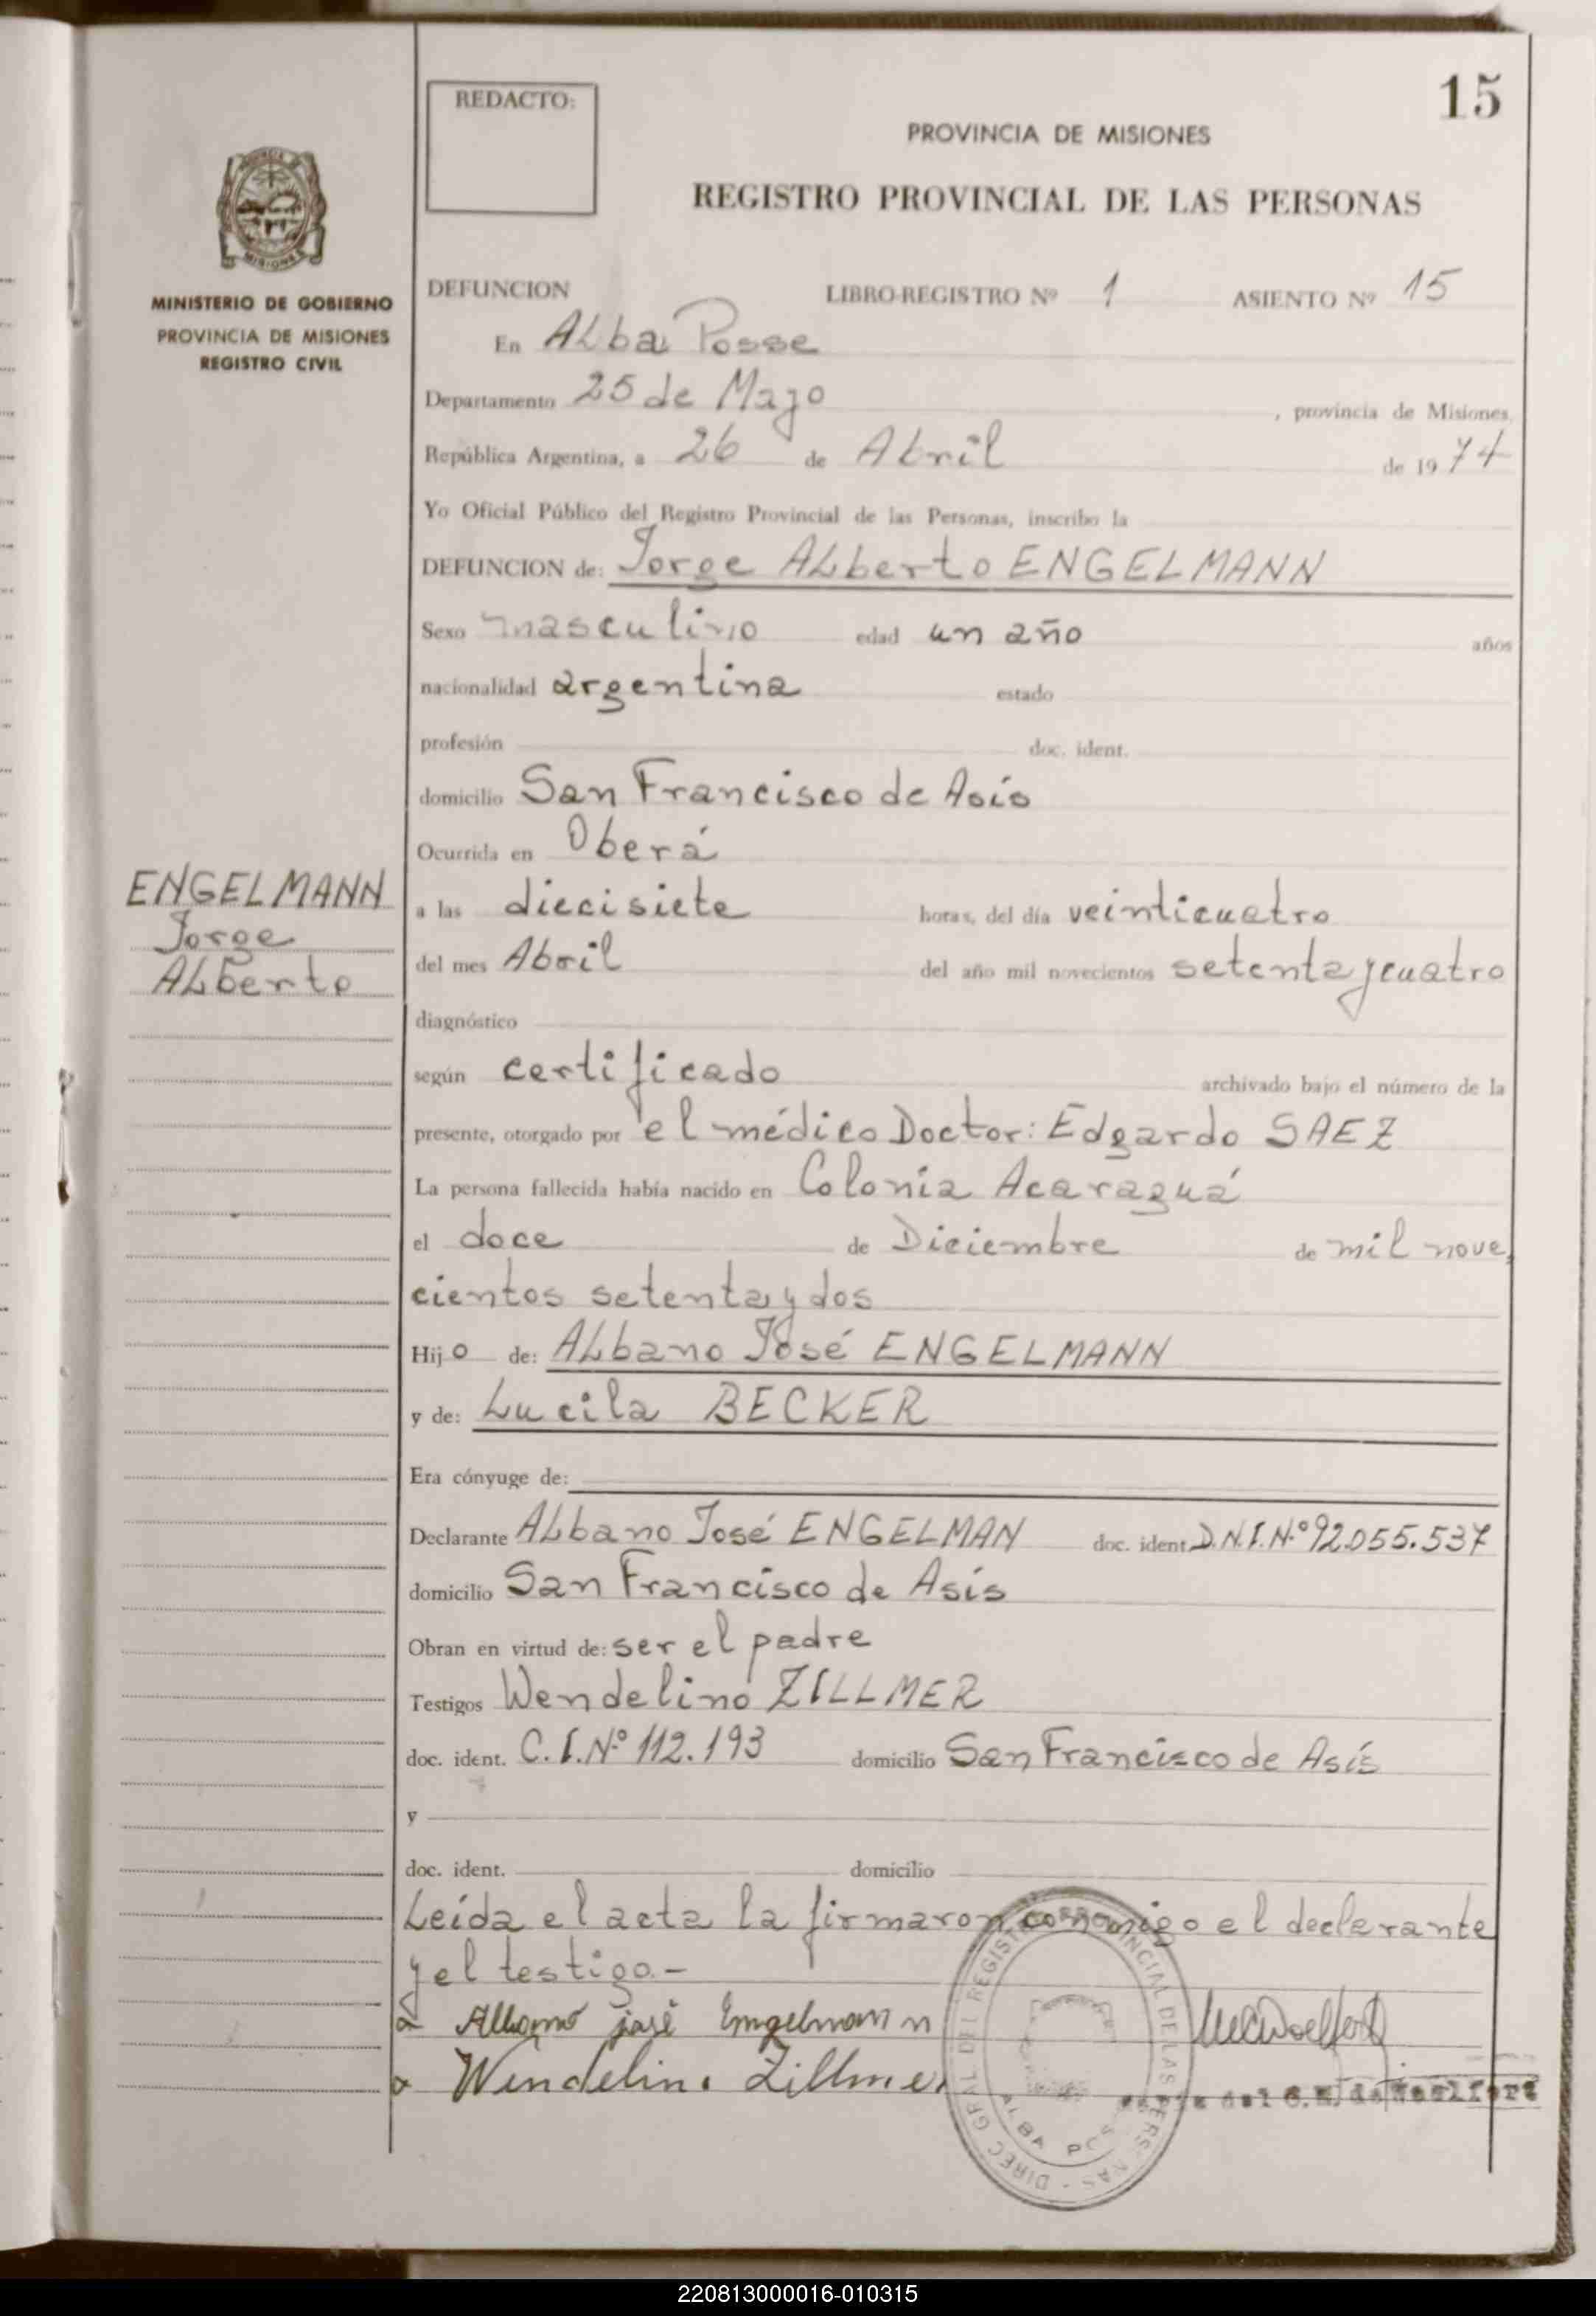 15
REDACTO:
PROVINCIA DE MISIONES
REGISTRO PROVINCIAL DE LAS PERSONAS
MISIONES
MINISTERIO DE GOBIERNO
PROVINCIA DE MISIONES
REGISTRO CIVIL
DEFUNCION LIBRO-REGISTRO Nº 1 ASIENTO Nº 15
En ALba Posse
Departamento 25 de Mayo , provincia de Misiones,
República Argentina, a 26 de Abril de 19 74
Yo Oficial Público del Registro Provincial de las Personas, inscribo la
DEFUNCION de: Jorge ALberto ENGELMANN
Sexo masculino edad un año años
nacionalidad argentina estado
profesión doc. ident.
domicilio San Francisco de Asis
Ocurrida en Oberá
ENGELMANN
Jorge
ALberto
a las diecisiete horas, del día veinticuatro
del mes Abril del año mil novecientos setenta y cuatro
diagnóstico
según certificado archivado bajo el número de la
presente, otorgado por el médico Doctor: Edgardo SAEZ
La persona fallecida había nacido en Colonia Acaraguá
el doce de Diciembre de mil nove
cientos setenta y dos
Hij o de: ALbano José ENGELMANN
y de: Lucila BECKER
Era cónyuge de:
Declarante ALbano José ENGELMAN doc. ident. D.N.I.N.º 92.055.537
domicilio San Francisco de Asís
Obran en virtud de: ser el padre
Testigos Wendelino ZILLMER
doc. ident. C.I.Nº 112.193 domicilio San Francisco de Asís
y
doc. ident. domicilio
Leída el acta la firmaron conmigo el declarante
y el testigo.-
Albano josé Engelmann
Wendelino Zillmer
DIREC GRAL DEL REGISTRO PROVINCIAL DE LAS PERSONAS
ALBA POSSE
del C. de Woelfert
220813000016-010315